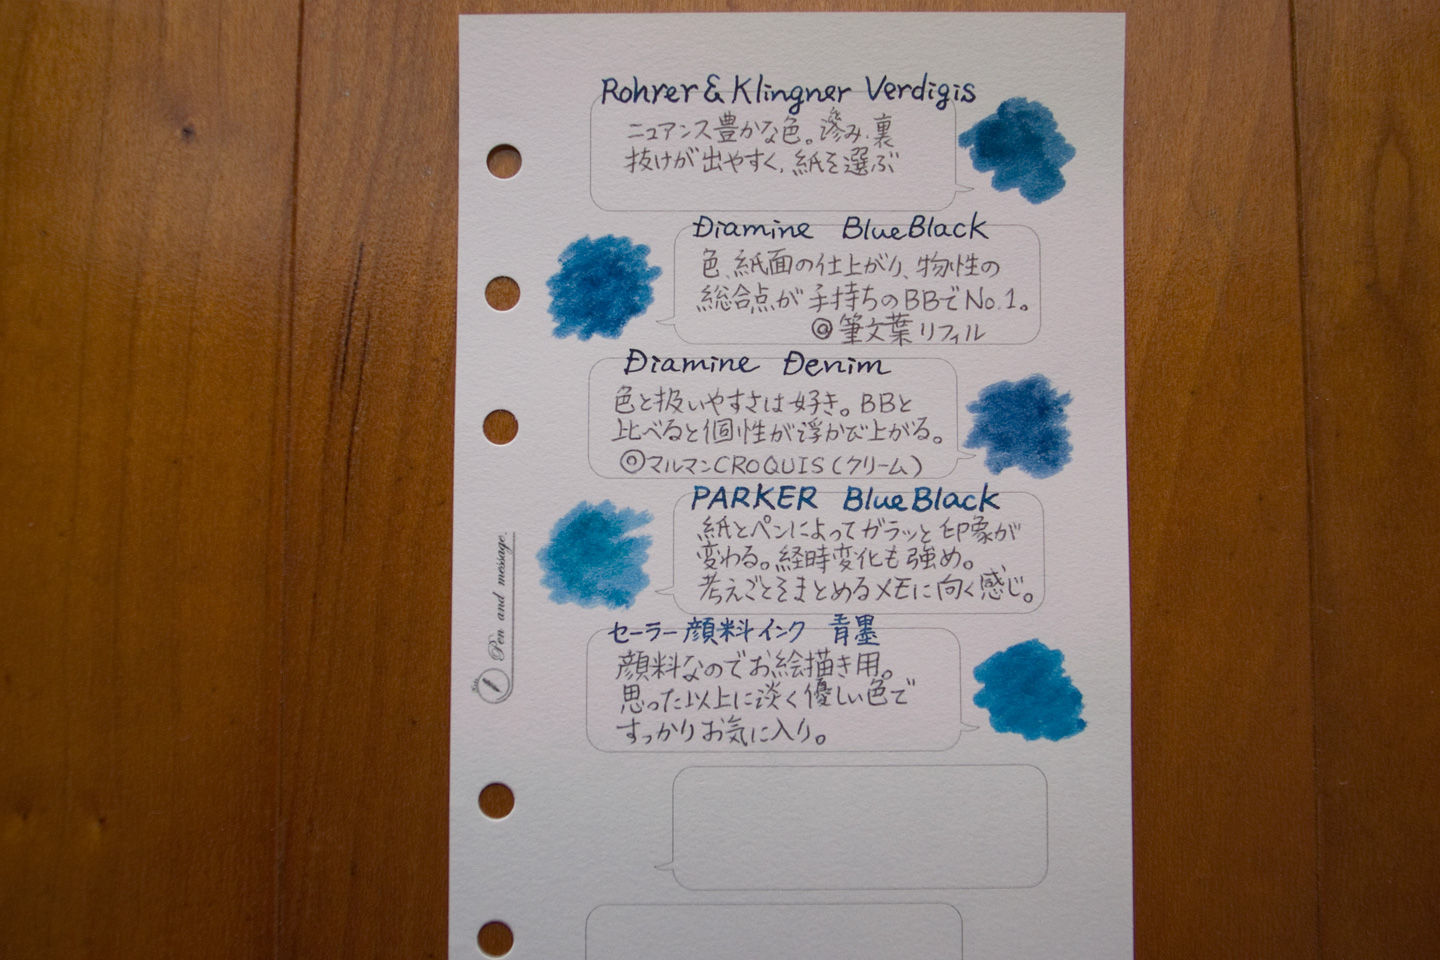 Rohrer & Klingner Verdigis
ニュアンス豊かな色。滲み、裏
抜けが出やすく、紙を選ぶ
Diamine BlueBlack
色、紙面の仕上がり、物性の
総合点が手持ちのBBでNo.1。
◎筆文葉リフィル
Diamine Denim
色と扱いやすさは好き。BBと
比べると個性が浮かび上がる。
◎マルマンCROQUIS(クリーム)
PARKER BlueBlack
紙とペンによってガラッと印象が
変わる。経時変化も強め。
考えごとをまとめるメモに向く感じ。
セーラー顔料インク 青墨
顔料なのでお絵描き用。
思った以上に淡く優しい色で
すっかりお気に入り。
Pen and message.